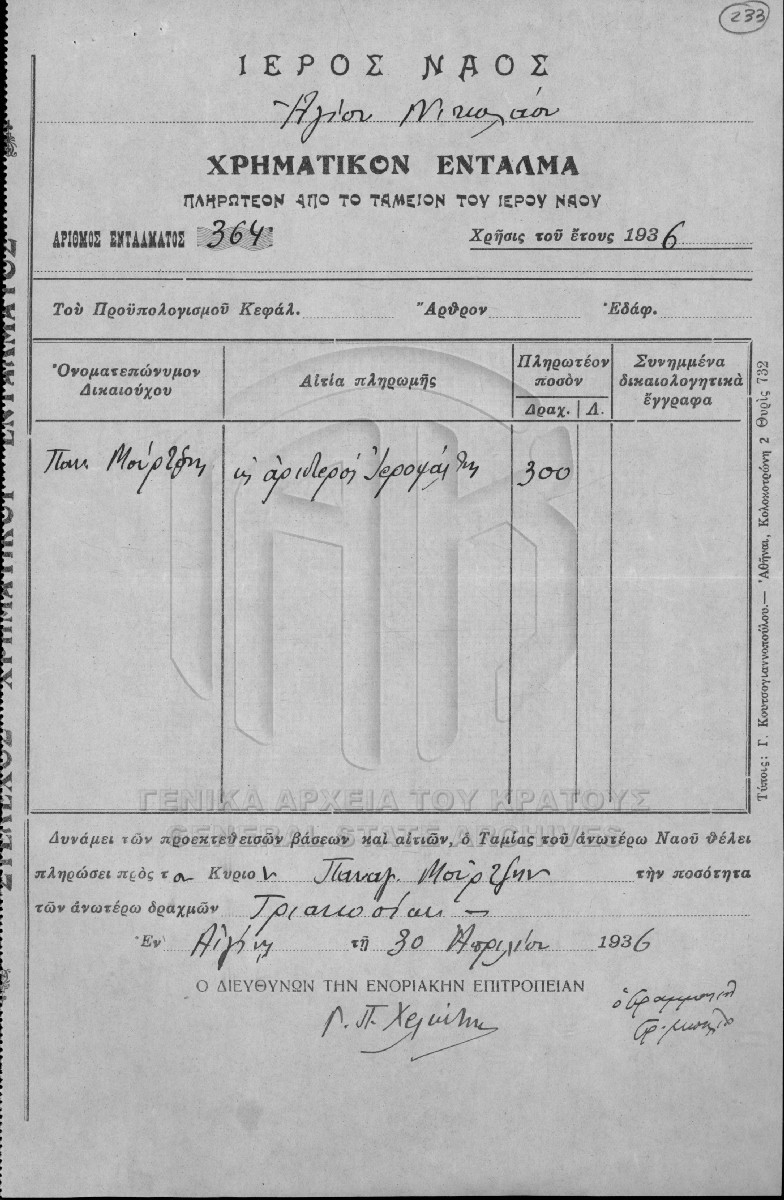 233
ΙΕΡΟΣ ΝΑΟΣ
Ἁγίου Νικολάου
ΧΡΗΜΑΤΙΚΟΝ ΕΝΤΑΛΜΑ
ΠΛΗΡΩΤΕΟΝ ΑΠΟ ΤΟ ΤΑΜΕΙΟΝ ΤΟΥ ΙΕΡΟΥ ΝΑΟΥ
ΑΡΙΘΜΟΣ ΕΝΤΑΛΜΑΤΟΣ 364 Χρῆσις τοῦ ἔτους 1936
Τοῦ Προϋπολογισμοῦ Κεφάλ. Ἄρθρον Ἐδάφ.
Ὀνοματεπώνυμον Δικαιούχου
Αἰτία πληρωμῆς
Πληρωτέον ποσὸν
Δραχ. Λ.
Συνημμένα δικαιολογητικὰ ἔγγραφα
Παν. Μούρτζης ὡς ἀριστερὸς Ἱεροψάλτης 300
ΓΕΝΙΚΑ ΑΡΧΕΙΑ ΤΟΥ ΚΡΑΤΟΥΣ
GENERAL STATE ARCHIVES
Δυνάμει τῶν προεκτεθεισῶν βάσεων καὶ αἰτιῶν, ὁ Ταμίας τοῦ ἀνωτέρω Ναοῦ θέλει
πληρώσει πρὸς τὸν Κύριον Παναγ. Μούρτζην τὴν ποσότητα
τῶν ἀνωτέρω δραχμῶν Τριακοσίων —
Ἐν Αἰγίνῃ τῇ 30 Ἀπριλίου 1936
Ο ΔΙΕΥΘΥΝΩΝ ΤΗΝ ΕΝΟΡΙΑΚΗΝ ΕΠΙΤΡΟΠΕΙΑΝ
Γ. Π. Χελιώτης
ΣΤΕΛΕΧΟΣ ΧΡΗΜΑΤΙΚΟΥ ΕΝΤΑΛΜΑΤΟΣ
Τύποις: Γ. Κουτσογιαννοπούλου.— Ἀθῆναι, Κολοκοτρώνη 2 Θυρὶς 732